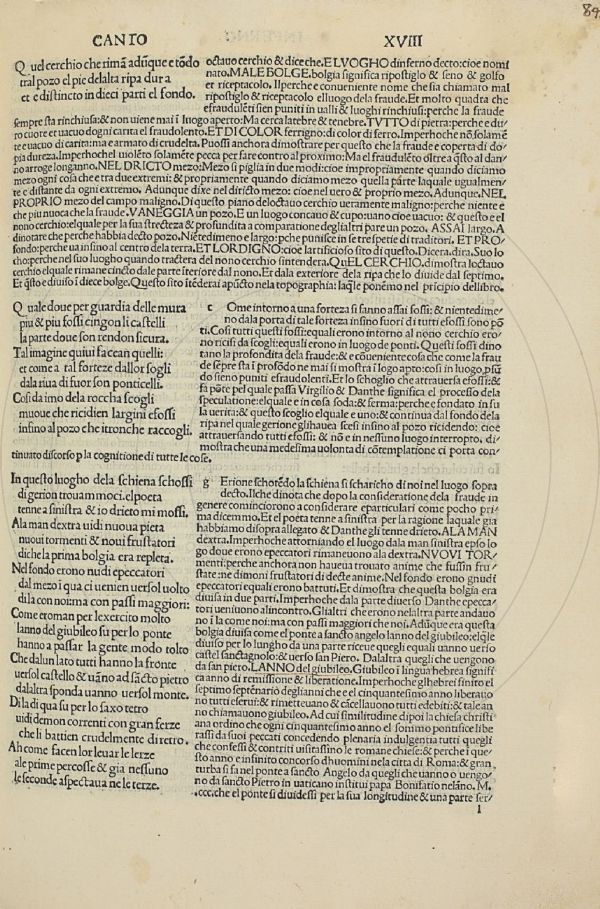 84
CANTO XVIII
Quel cerchio che rimã adũque e tõdo
tral pozo el pie delalta ripa dura
et e distincto in dieci parti el fondo.
octauo cerchio & dice che. E LVOGHO dinferno decto: cioe nomi
nato. MALE BOLGE. bolgia significa ripostiglio & seno & golfo
et riceptacolo. Ilperche e conueniente nome che sia chiamato mal
ripostiglio & riceptacolo elluogo dela fraude. Et molto quadra che
efraudulẽti sien puniti in ualli & luoghi rinchiusi: perche la fraude
sempre sta rinchiusa: & non uiene mai ĩ luogo aperto: Ma cerca latebre & tenebre. TVTTO di pietra: perche e du/
ro cuore et uacuo dogni carita el fraudolento. ET DI COLOR ferrigno: di color di ferro. Imperhoche nõ solamẽ
te e uacuo di carita: ma e armato di crudelta. Puossi anchora dimostrare per questo che la fraude e coperta di do/
pia dureza. Imperhoche l uiolẽto solamẽte pecca per fare contro al proximo: Ma el fraudulẽto oltre a q̃sto al dan/
no arroge longanno. NEL DRICTO mezo: Mezo si piglia in due modi: cioe impropriamente quando diciamo
mezo ogni cosa che e tra due extremi: & propriamente quando diciamo mezo quella parte laquale ugualmen/
te e distante da ogni extremo. Adunque dixe nel diricto mezo: cioe nel uero & proprio mezo. Adunque. NEL
PROPRIO mezo del campo maligno. Di questo piano deloctauo cerchio ueramente maligno: perche niente e
che piu nuoca che la fraude. VANEGGIA un pozo. E un luogo concauo & cupo: uano cioe uacuo: & questo e el
nono cerchio: elquale per la sua strecteza & profundita a comparatione deglialtri pare un pozo. ASSAI largo. A
dinotare che perche habbia decto pozo. Niẽtedimeno e largo: perche punisce in se tre spetie di traditori. ET PRO/
fondo: perche ua infino al centro dela terra. ET LORDIGNO: cioe lartificioso sito di questo. Dicera. dira. Suo lo
cho: perche nel suo luogho quando tractera del nono cerchio sintendera. QuEL CERCHIO. dimostra loctauo
cerchio elquale rimane cincto dale parte iferiore dal nono. Et da la exteriore dela ripa che lo diuide dal septimo.
Et q̃sto e diuiso ĩ diece bolge. Questo sito itẽderai apũcto nela topographia: laq̃le ponẽmo nel pricipio dellibro.
Quale doue per guardia delle mura
piu & piu fossi cingon li castelli
la parte doue son rendon sicura.
Tal imagine quiui facean quelli:
et come a tal forteze dallor sogli
dala riua di fuor son ponticelli.
Cosi da imo dela roccha scogli
muoue che ricidien largini efossi
infino al pozo che itronche raccogli.
c Ome intorno a una forteza si fanno assai fossi: & nientedime/
no dala porta di tale forteza infino fuori di tutti efossi sono põ
ti. Cosi tutti questi fossi: equali erono intorno al nono cerchio ero/
no ricisi da scogli: equali erono in luogo de ponti. Questi fossi dino
tano la profondita dela fraude: & e cõueniente cosa che come la frau
de sẽpre sta ĩ profõdo ne mai si mostra ĩ logo apto: cosi in luogo, pfũ
do sieno puniti efraudolenti. Et lo schoglio che attrauersa efossi: &
fa põte pel quale passa Virgilio & Danthe significa el processo dela
speculatione: elquale e in cosa soda: & ferma: perche e fondato in su
la uerita: & questo scoglio elquale e uno: & continua dal fondo dela
ripa nel quale gerione glihauea scesi infino al pozo ricidendo: cioe
attrauersando tutti efossi: & nõ e in nessuno luogo interropto. di/
mostra che una medesima uolonta di cõtemplatione ci porta con/
tinuato discorso p la cognitione di tutte le cose.
In questo luogho dela schiena schossi
di gerion trouammoci. el poeta
tenne a sinistra & io drieto mi mossi.
Ala man dextra uidi nuoua pieta
nuoui tormenti & noui frustatori
di che la prima bolgia era repleta.
Nel fondo erono nudi epeccatori
dal mezo ĩ qua ci uenien uersol uolto
di la con noi: ma con passi maggiori:
Come eroman per lexercito molto
lanno del giubileo su per lo ponte
hanno a passar la gente modo tolto
Che dalun lato tutti hanno la fronte
uersol castello & uãno ad sãcto pietro
dalaltra sponda uanno uersol monte.
Di la di qua su per lo saxo tetro
uidi demon correnti con gran ferze
che li battien crudelmente di retro.
Ah come facen lor leuar le lerze
ale prime percosse & gia nessuno
le seconde aspectaua ne le terze.
g Erione schotẽdo la schiena si scharicho di noi nel luogo sopra
decto. Ilche dinota che dopo la consideratione dela fraude in
genere comincioronο a considerare eparticulari come pocho pri/
ma dicemmo. Et el poeta tenne a sinistra per la ragione laquale gia
habbiamo disopra allegato & Danthe gli tenne drieto. ALA MAN
dextra. Imperhoche attorniando el luogo dala man sinistra epso lo
go doue erono epeccatori rimaneuono ala dextra. NVOVI TOR/
menti: perche anchora non haueua trouato anime che fussin fru/
state: ne dimoni frustatori di decte anime. Nel fondo erono gnudi
epeccatori equali erono battuti. Et dimostra che questa bolgia era
diuisa in due parti. Imperhoche dala parte diuerso Danthe epecca/
tori ueniuono alincontro. Glialtri che erono nelaltra parte andauo
no ĩ la come noi: ma con passi maggiori che noi. Adũque era questa
bolgia diuisa come el ponte a sancto angelo lanno del giubileo: elq̃le
diuiso per lo lungho da una parte riceue quegli equali uanno uerso
castel sanctagnolo: & uerso san Piero. Dalaltra quegli che uengono
da san pietro. LANNO del giubileo. Giubileo ĩ lingua hebrea signifi
ca anno di remissione & liberatione. Imperhoche glhebrei finito el
septimo septenario deglianni che e el cinquantesimo anno liberauo
no tutti eserui: & rimetteuano & cãcellauono tutti edebiti: & tale an
no chiamauono giubileo. Ad cui similitudine dipoi la chiesa christi
ana ordino che ogni cinquantesimo anno el sommo pontifice libe
rassi da suoi peccati concedendo plenaria indulgentia tutti quegli
che confessi & contriti uisitassino le romane chiese: & perche ĩ que/
sto anno e infinito concorso dhuomini nela citta di Roma: & gran
turba si fa nel ponte a sancto Angelo da quegli che uanno o uengo/
no da sancto Pietro in uaticano institui papa Bonifatio nelãno. M.
.ccc. che el ponte si diuidessi per la sua longitudine & una parte ser/
l